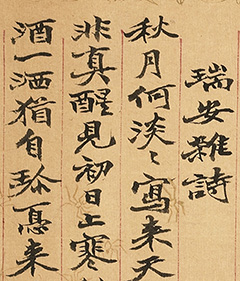 瑞安雜詩
秋月何淡〻寫来天
非真醒見初日上寒
酒一洒猶自来